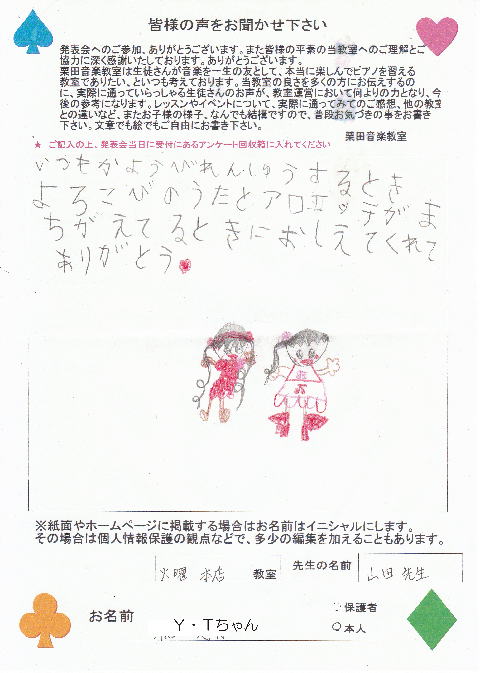 皆様の声をお聞かせ下さい
発表会へのご参加、ありがとうございます。また皆様の平素の当教室へのご理解とご
協力に深く感謝いたしております。ありがとうございます。
栗田音楽教室は生徒さんが音楽を一生の友として、本当に楽しんでピアノを習える
教室でありたい、といつも考えております。当教室の良さを多くの方にお伝えするの
に、実際に通っていらっしゃる生徒さんのお声が、教室運営において何よりの力となり、今
後の参考になります。レッスンやイベントについて、実際に通ってみてのご感想、他の教室
との違いなど、またお子様の様子、なんでも結構ですので、普段お気づきの事をお書き
下さい。文章でも絵でもご自由にお書き下さい。
栗田音楽教室
★ ご記入の上、発表会当日に受付にあるアンケート回収箱に入れてください
いつもかようびれんしゅうするとき
よろこびのうたとアロエッテがま
ちがえてるときにおしえてくれて
ありがとう
※紙面やホームページに掲載する場合はお名前はイニシャルにします。
その場合は個人情報保護の観点などで、多少の編集を加えることもあります。
火曜 本店 教室 先生の名前 山田 先生
お名前 Y・Tちゃん ○保護者
○本人